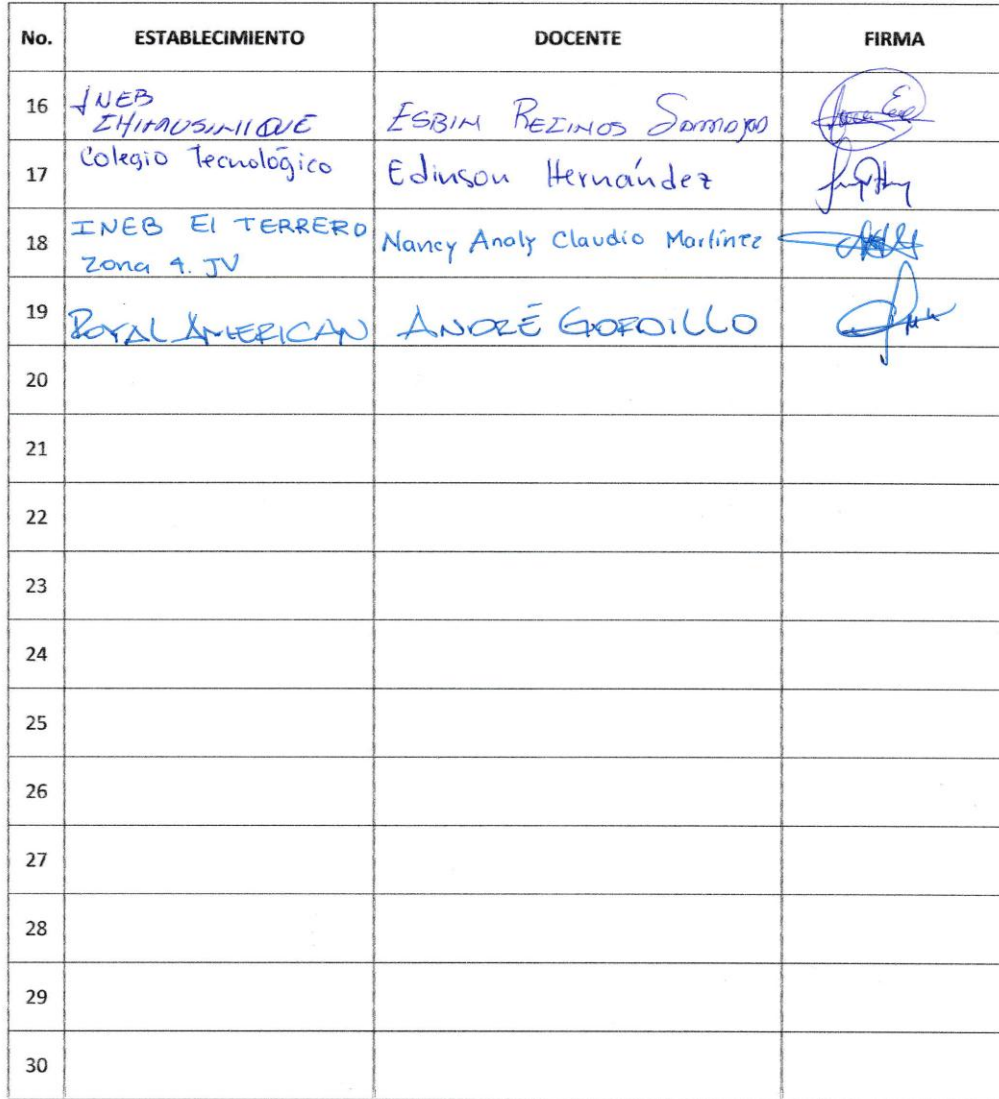 No. ESTABLECIMIENTO DOCENTE FIRMA
16 INEB
CHIMUSINIQUE ESBIN REZINOS
17 Colegio Tecnológico Edinson Hernández
18 INEB El TERRERO Nancy Analy Claudio Martínez
Zona 4. JV
19 ROYAL AMERICAN ANDRÉ GORDILLO
20
21
22
23
24
25
26
27
28
29
30